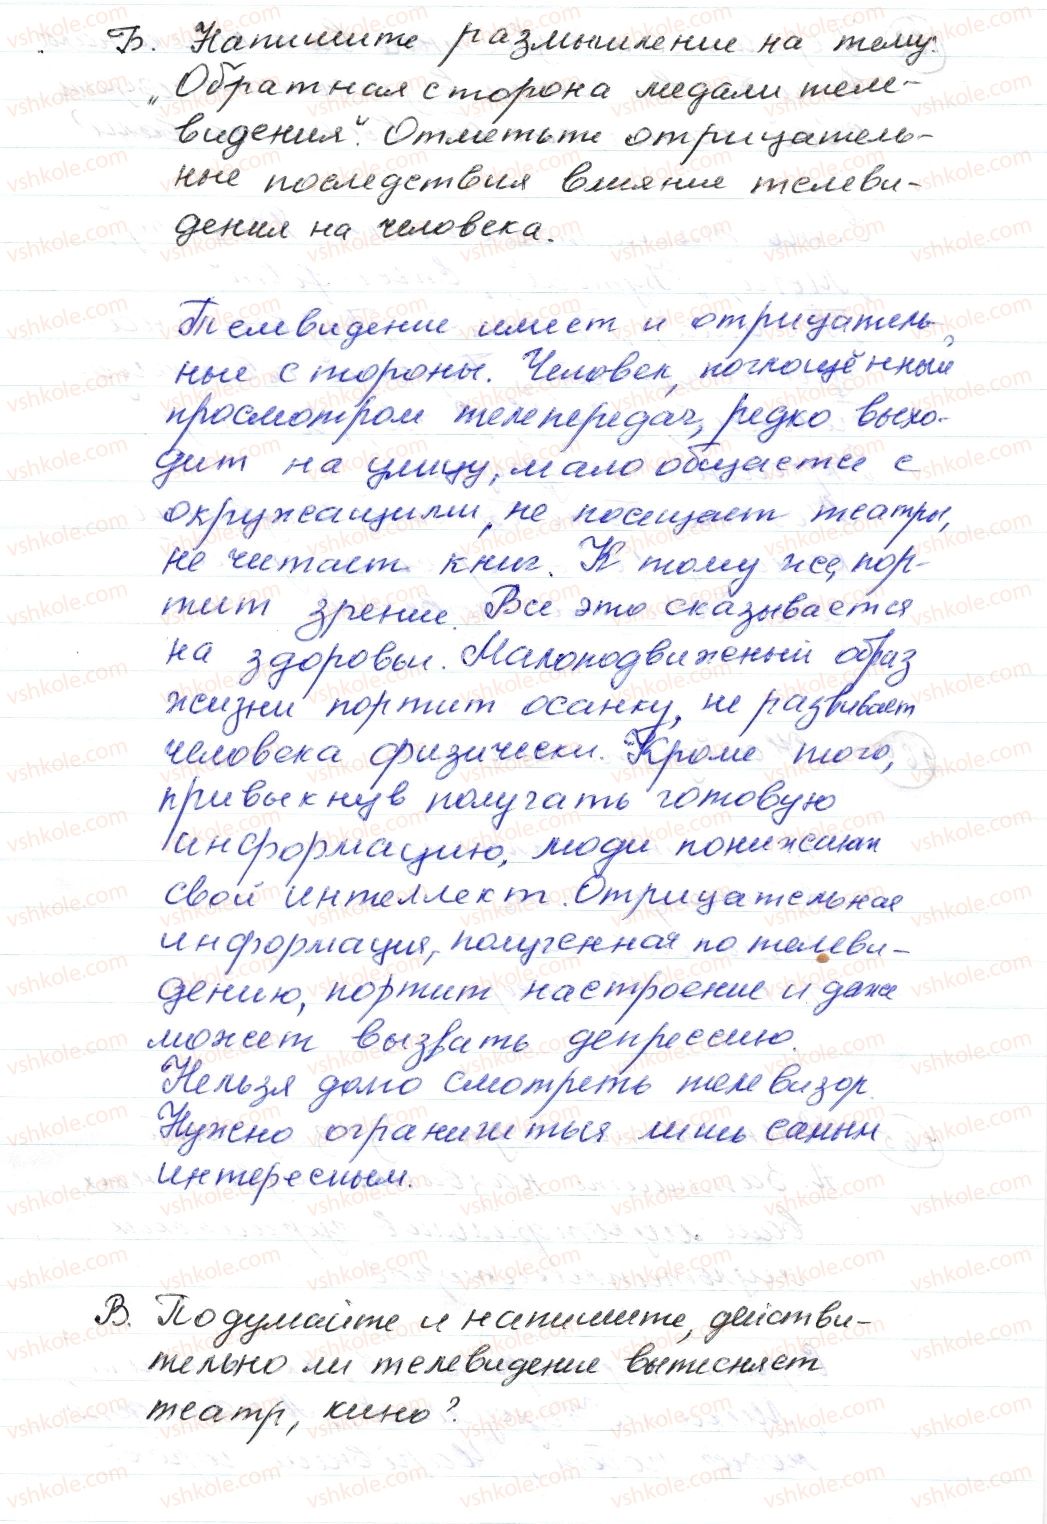 Б. Напишите размышление на тему:
„Обратная сторона медали теле-
видения". Отметьте отрицатель-
ные последствия влияние телеви-
дения на человека.
Телевидение имеет и отрицатель-
ные стороны. Человек, поглощённый
просмотром телепередач, редко выхо-
дит на улицу, мало общается с
окружающими, не посещает театры,
не читает книг. К тому же, пор-
тит зрение. Все это сказывается
на здоровьи. Малоподвиженый образ
жизни портит осанку, не развивает
человека физически. Кроме того,
привыкнув получать готовую
информацию, люди понижают
свой интеллект. Отрицательная
информация, полученная по телеви-
дению, портит настроение и даже
может вызвать депрессию.
Нельзя долго смотреть телевизор.
Нужно ограничиться лишь самым
интересным.
В. Подумайте и напишите, действи-
тельно ли телевидение вытесняет
театр, кино?